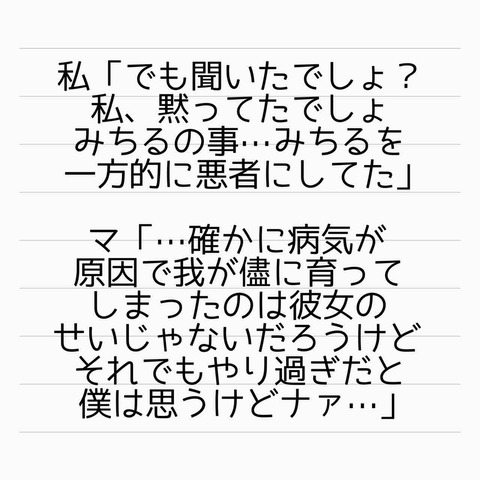 私「でも聞いたでしょ？
私、黙ってたでしょ
みちるの事…みちるを
一方的に悪者にしてた」
マ「…確かに病気が
原因で我が儘に育って
しまったのは彼女の
せいじゃないだろうけど
それでもやり過ぎだと
僕は思うけどナァ…」